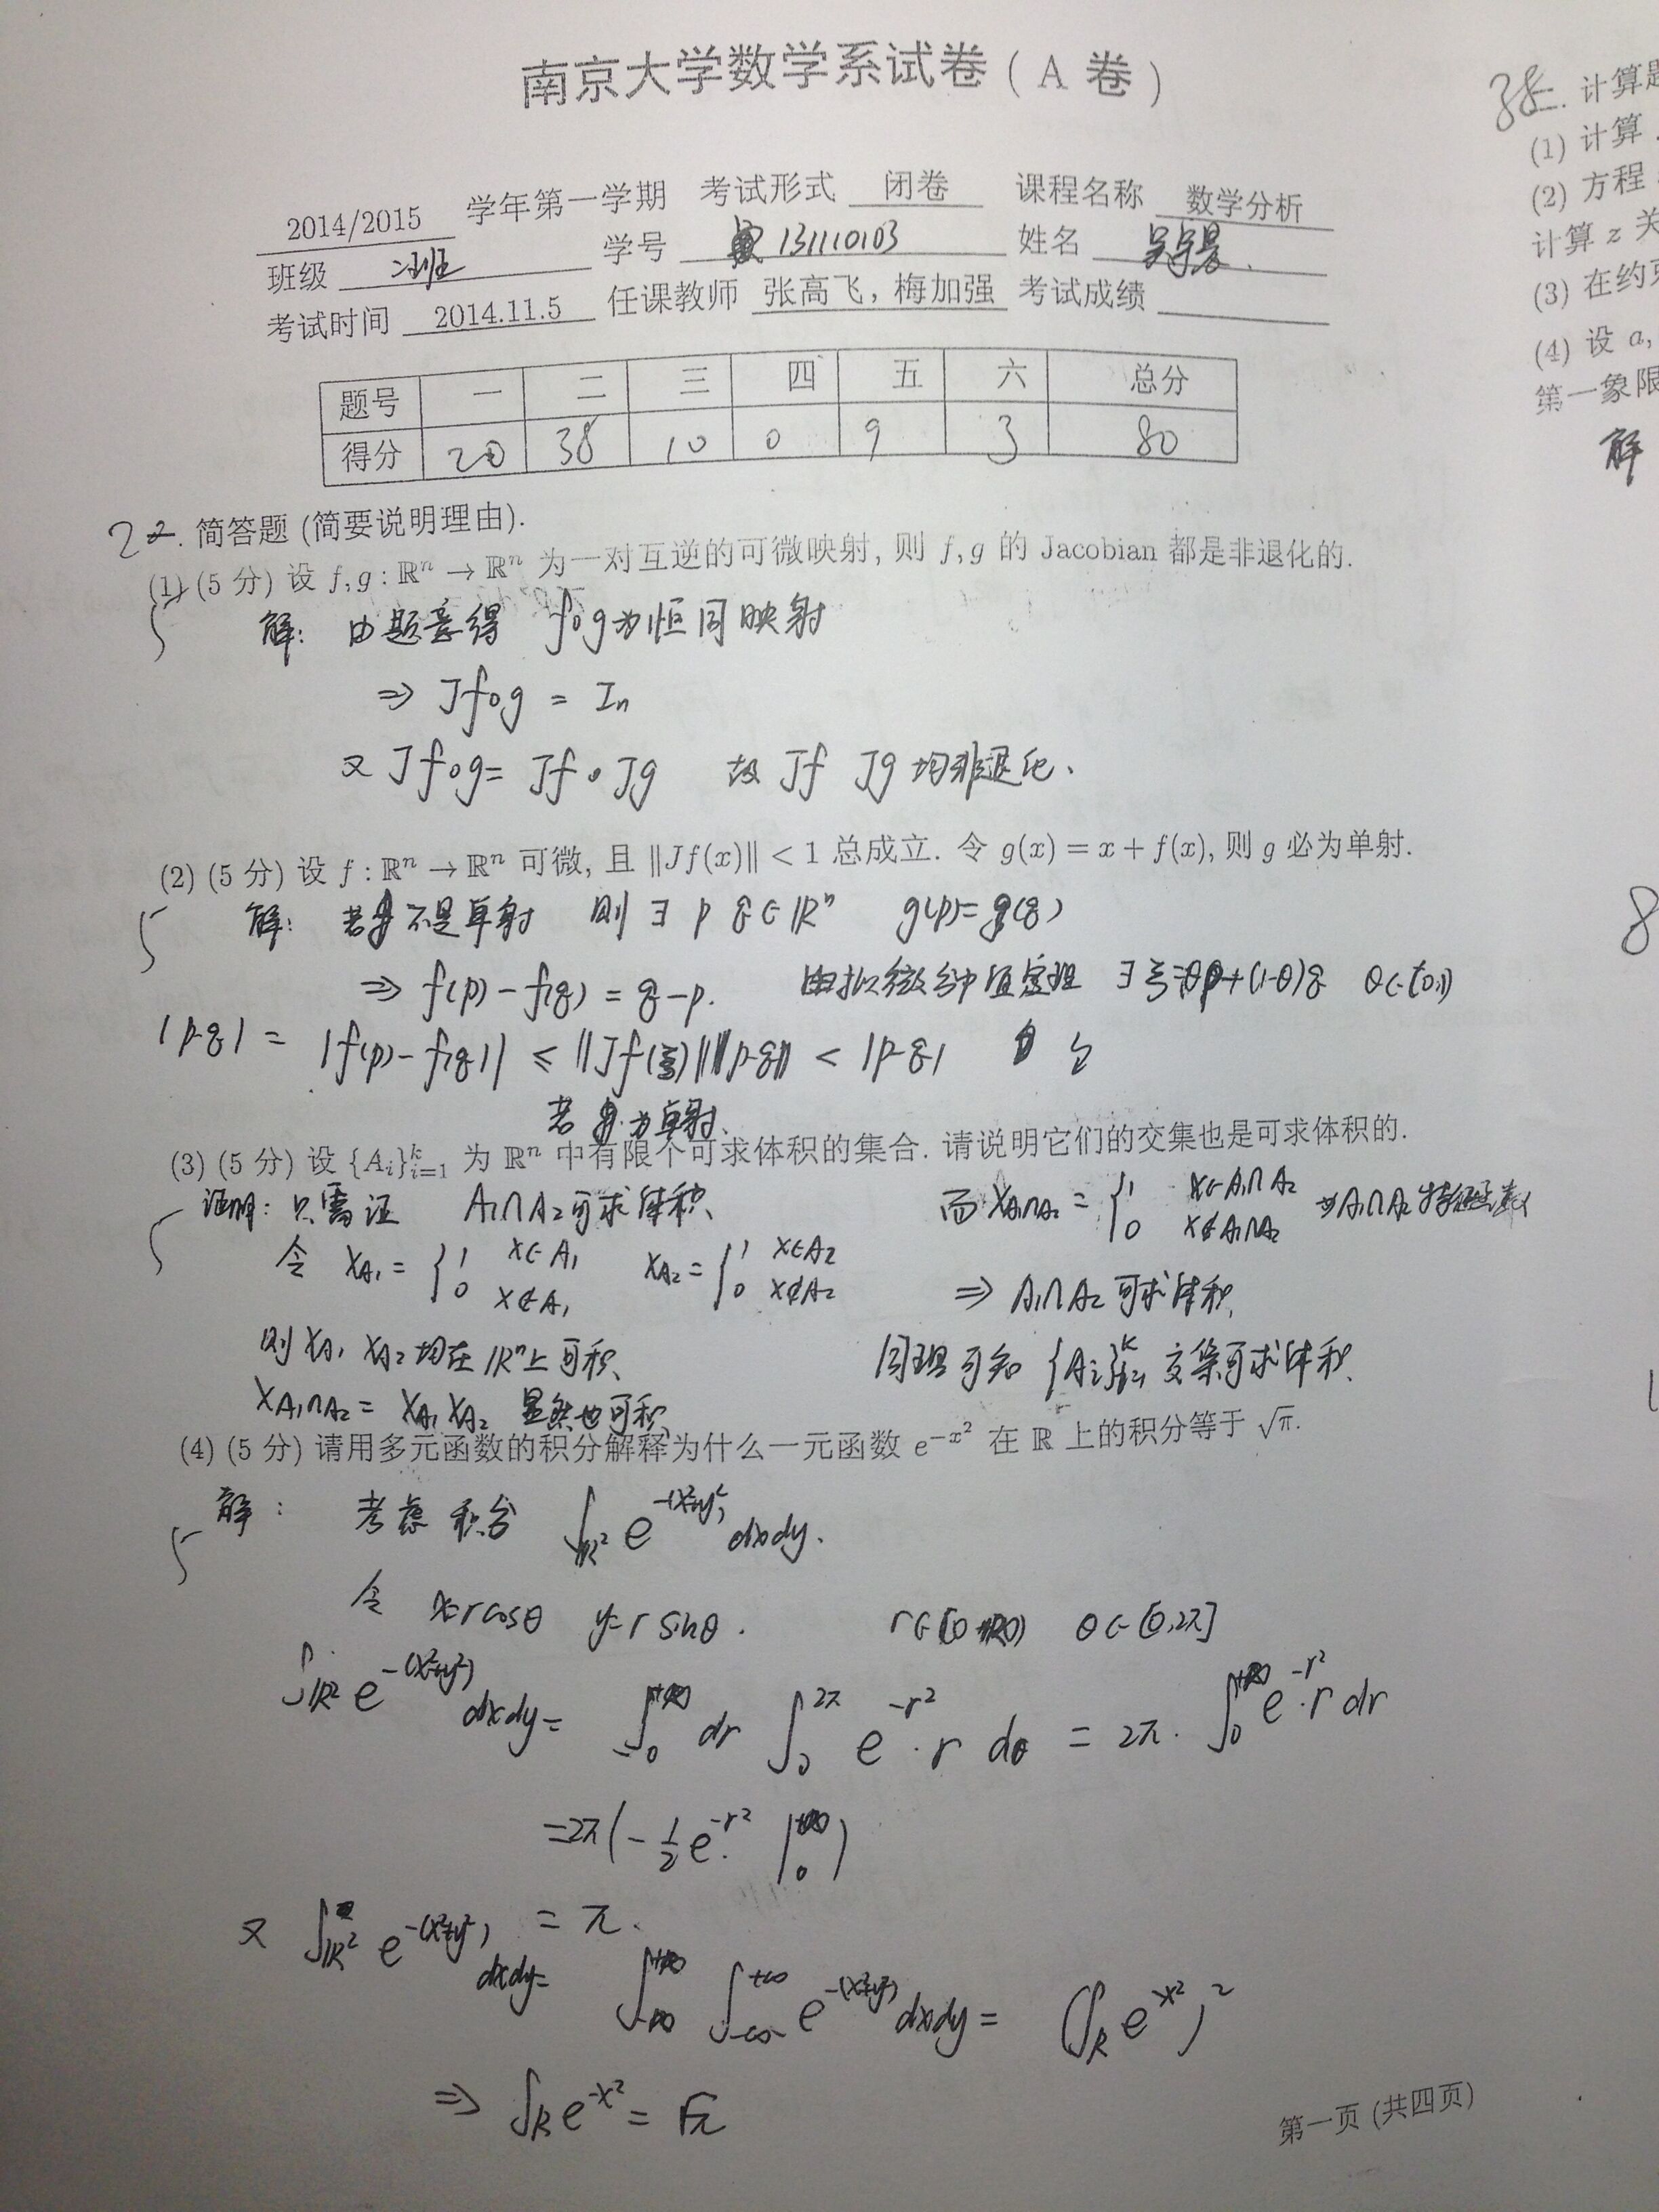 南京大学数学系试卷 ( A 卷 )
2014/2015 学年第一学期 考试形式 闭卷 课程名称 数学分析
班级 学号 131110103 姓名
考试时间 2014.11.5 任课教师 张高飞, 梅加强 考试成绩
题号 一 二 三 四 五 六 总分
得分 20 38 10 0 9 3 80
简答题 (简要说明理由).
(1) (5 分) 设 f, g : ℝⁿ → ℝⁿ 为一对互逆的可微映射, 则 f, g 的 Jacobian 都是非退化的.
5
解: 由题意得 f∘g为恒同映射
⇒ Jf∘g = Iₙ
又 Jf∘g = Jf∘Jg 故 Jf Jg 均非退化.
(2) (5 分) 设 f : ℝⁿ → ℝⁿ 可微, 且 ‖Jf(x)‖ < 1 总成立. 令 g(x) = x + f(x), 则 g 必为单射.
5
解: 若g不是单射 则 ∃ p q∈ℝⁿ g(p)=g(q)
⇒ f(p) - f(q) = q-p. 由拟微分中值定理 ∃ ξ=θp+(1-θ)q θ∈(0,1)
|p-q| = |f(p)-f(q)| ≤ ‖Jf(ξ)‖‖p-q‖ < |p-q|
g为单射.
(3) (5 分) 设 {Aᵢ}ᵏᵢ₌₁ 为 ℝⁿ 中有限个可求体积的集合. 请说明它们的交集也是可求体积的.
5
证明: 只需证 A₁∩A₂可求体积
令 χ_A₁ = { 1 x∈A₁ 0 x∉A₁ χ_A₂ = { 1 x∈A₂ 0 x∉A₂
则 χ_A₁ χ_A₂ 均在ℝⁿ上可积
χ_A₁∩A₂ = χ_A₁ χ_A₂ 显然也可积
而 χ_A₁∩A₂ = { 1 x∈A₁∩A₂ 0 x∉A₁∩A₂ 为A₁∩A₂特征函数
⇒ A₁∩A₂ 可求体积
同理可知 {Aᵢ}ᵏᵢ₌₁ 交集可求体积.
(4) (5 分) 请用多元函数的积分解释为什么一元函数 e^{-x²} 在 ℝ 上的积分等于 √π.
5
解: 考虑积分 ∫_{ℝ²} e^{-(x²+y²)} dxdy.
令 x=rcosθ y=rsinθ. r∈[0,+∞) θ∈[0,2π]
∫_{ℝ²} e^{-(x²+y²)} dxdy = ∫₀^{+∞} dr ∫₀^{2π} e^{-r²}·r dθ = 2π·∫₀^{+∞} e^{-r²}·r dr
=2π(-½e^{-r²} |₀^{+∞})
= π.
又 ∫_{ℝ²} e^{-(x²+y²)} dxdy = ∫_{-∞}^{+∞} ∫_{-∞}^{+∞} e^{-(x²+y²)} dxdy = (∫_ℝ e^{-x²})²
⇒ ∫_ℝ e^{-x²} = √π
第一页 (共四页)
计算题
(1) 计算
(2) 方程
计算 z 关
(3) 在约束
(4) 设 a,
第一象限
解
8